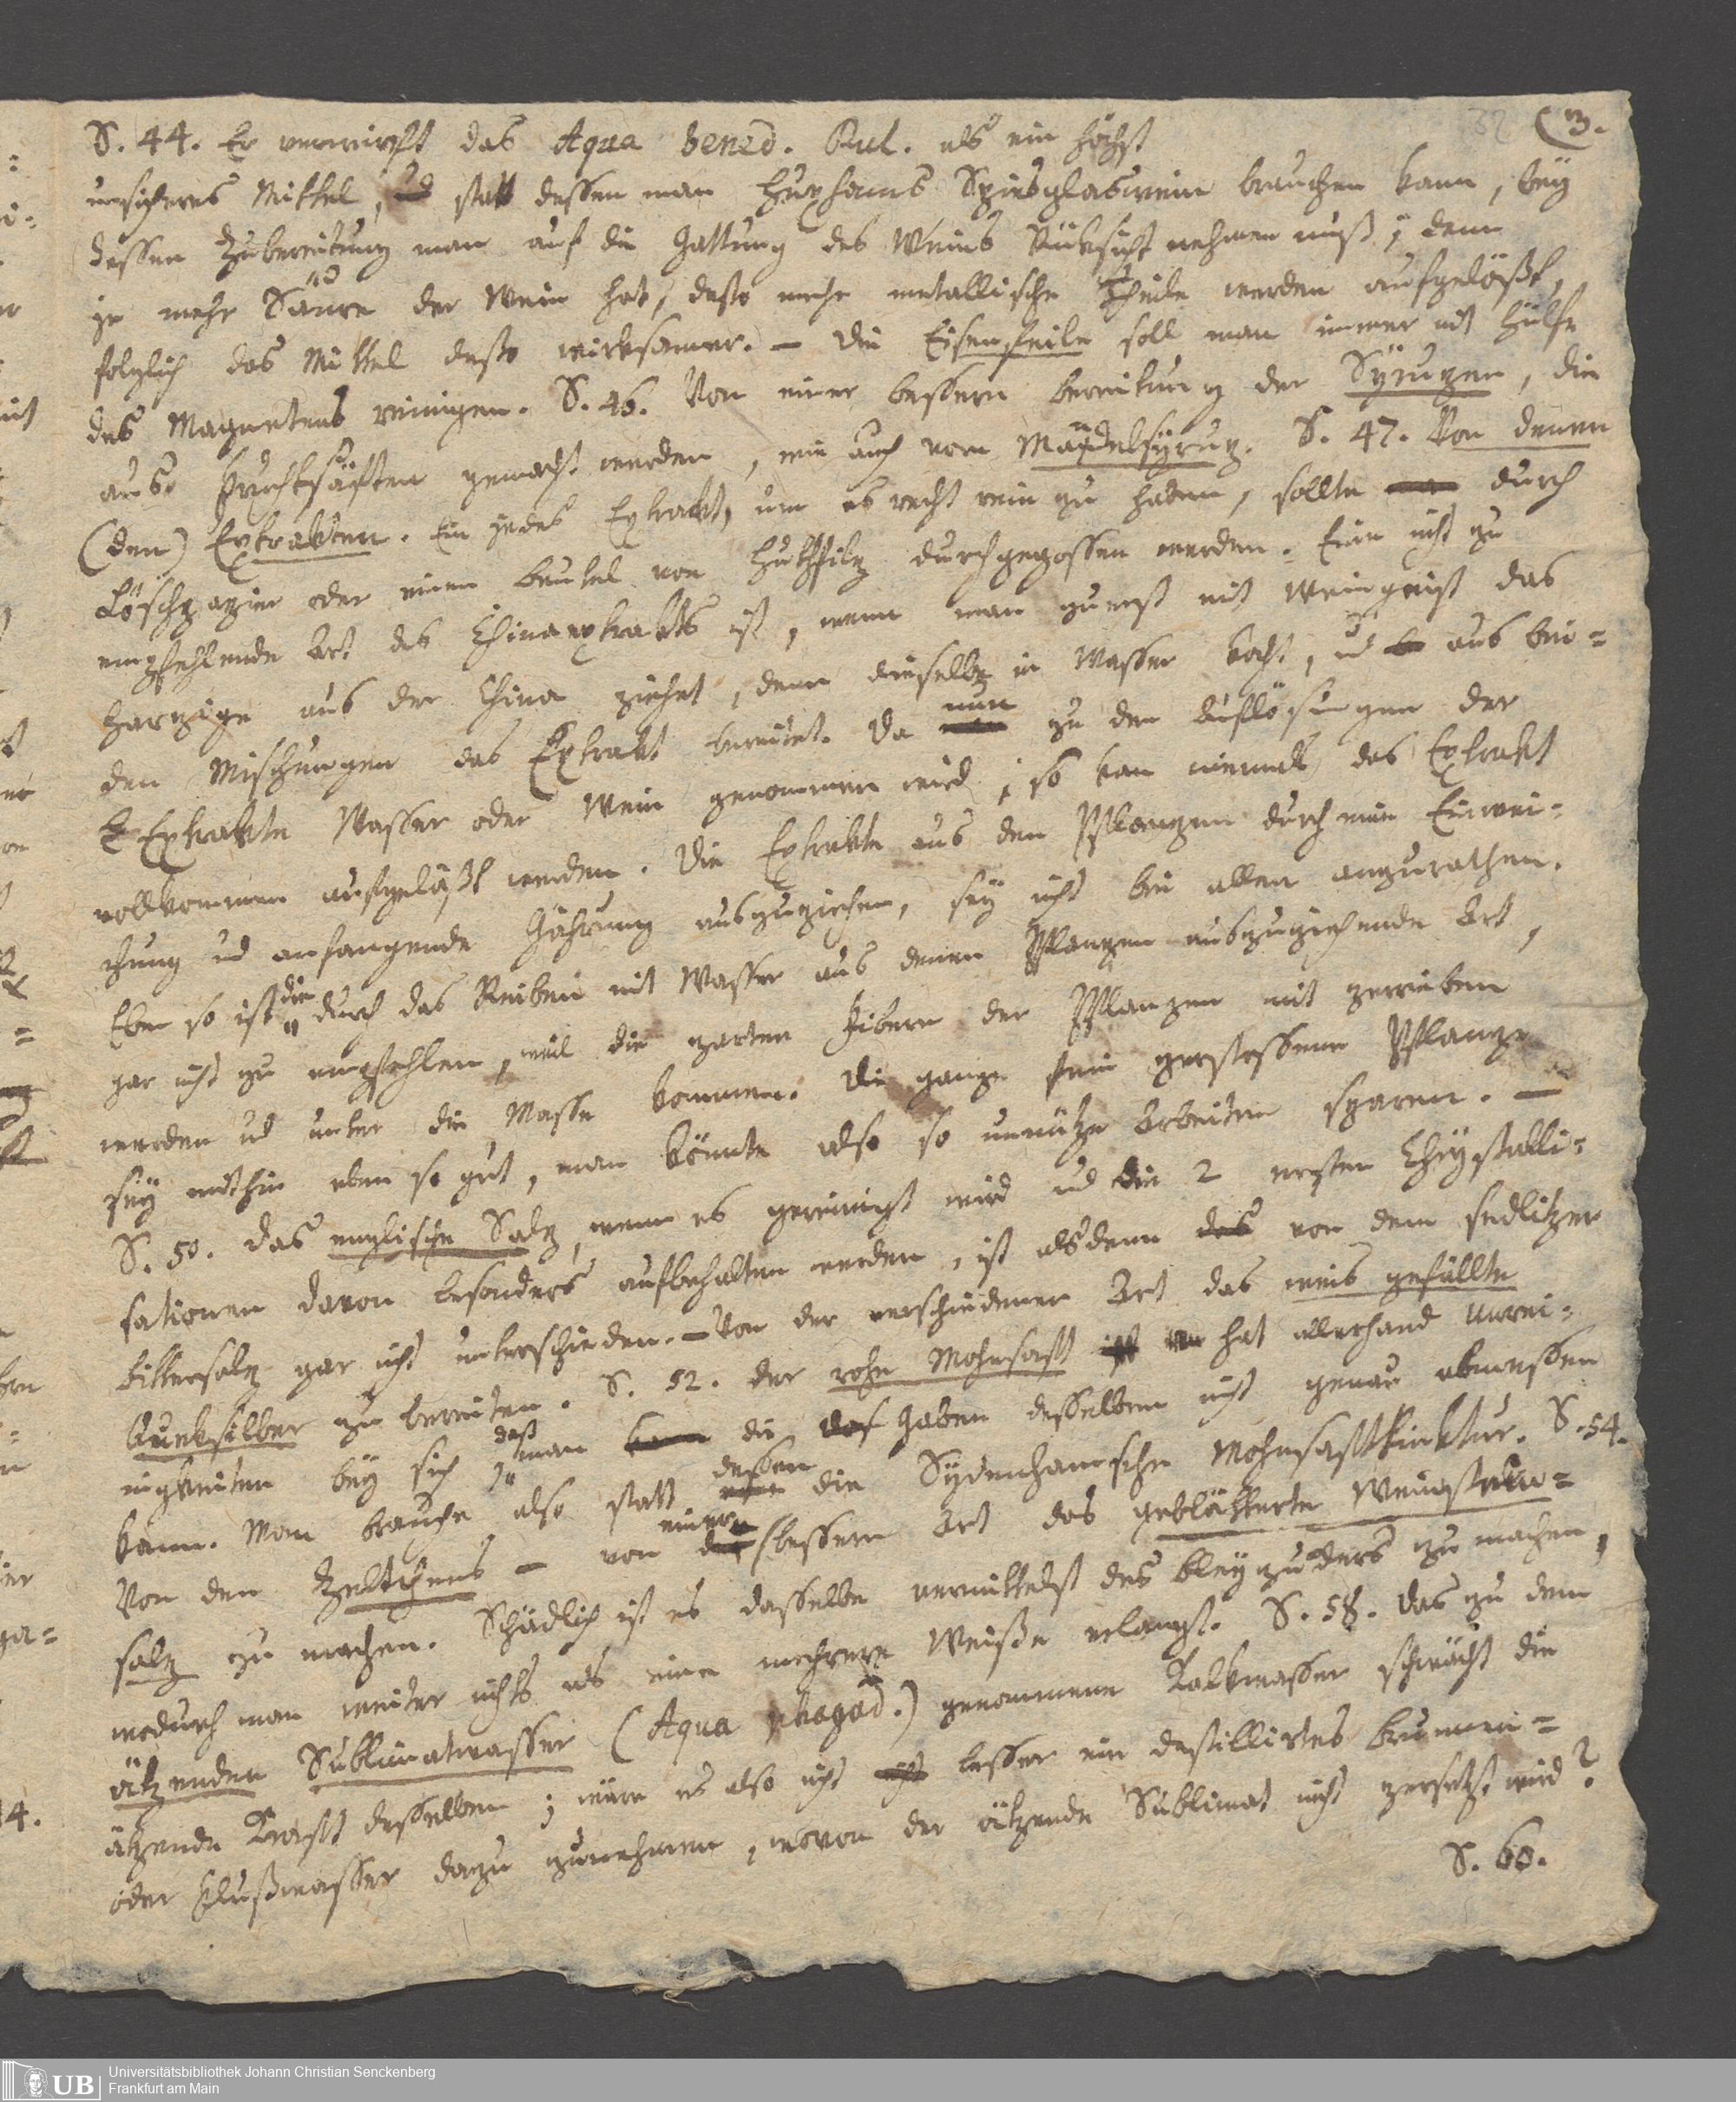 32 (3.
S. 44. Er verwirft das Aqua bened. Rul. als ein höchst
unsicheres Mittel, statt dessen man Huxhams Spiesglaswein brauchen kann, bey
dessen Zubereitung man auf die Gattung des Weins Rüksicht nehmen muß; denn
je mehr Säure der Wein hat, desto mehr metallische Theile werden aufgelößt,
folglich das Mittel desto wirksamer. – Die Eisenfeile soll man immer mit Hülfe
des Magnetens reinigen. S. 46. Von einer bessern bereitung der Syrupen, die
aus Fruchtsäften gemacht werden, wie auch vom Mandelsyrup. S. 47. Von denen
(den) Extrakten. Ein jedes Extrakt, um es recht rein zu haben, sollte durch
Löschpapier oder einen beutel von Huthfilz durchgegossen werden. Eine nicht zu
empfehlende Art des Chinaextrakts ist, wenn man zuerst mit Weingeist das
harzige aus der China ziehet, denn dieselbe in Wasser kocht, ud aus bei=
den Mischungen das Extrakt bereitet. Da nun zu den Auflösungen der
Extrakte Wasser oder Wein genommen wird, so kan niemals das Extrakt
vollkommen aufgelößt werden. Die Extrakte aus den Pflanzen durch eine Einwei=
chung ud anfangende Gährung auszuziehen, sey nicht bei allen anzurathen.
Eben so ist die durch das Reiben mit Wasser aus denen Pflanzen auszuziehende Art,
gar nicht zu empfehlen, weil die zarten Fibern der Pflanzen mit zerrieben
werden ud unter die Masse kommen. Die ganze fein zerstossene Pflanze
sey mithin eben so gut, man könnte also so unnütze Arbeiten sparen. –
S. 50. Das englische Salz, wenn es gereinigt wird ud die 2 ersten Chrystalli=
sationen davon besonders aufbehalten werden, ist alsdenn von dem sedlitzer
bittersalz gar nicht unterschieden. – Von der verschiedenen Art das weis gefällte
Queksilber zu bereiten. S. 52. Der rohe Mohnsaft hat allerhand Unrei=
nigkeiten bey sich, daß man die Gaben desselben nicht genau abmessen
kann. Man brauche also statt dessen die Sydenhamsche Mohnsafttinktur. S. 54.
Von den Zeltchens – von einer bessern Art das geblätterte Weinstein=
salz zu machen. Schädlich ist es dasselbe vermittelst des bleyzuckers zu machen,
wodurch man weiter nichts als eine mehrere Weiße erlangt. S. 58. Das zu dem
ätzenden Sublimatwasser (Aqua phagad.) genommene Kalkwasser schwächt die
ätzende Kraft desselben; wäre es also nicht besser ein destillirtes brunnen=
oder Flußwasser dazu zunehmen, wovon der ätzende Sublimat nicht zersetzt wird?
S. 60.
UB
Universitätsbibliothek Johann Christian Senckenberg
Frankfurt am Main